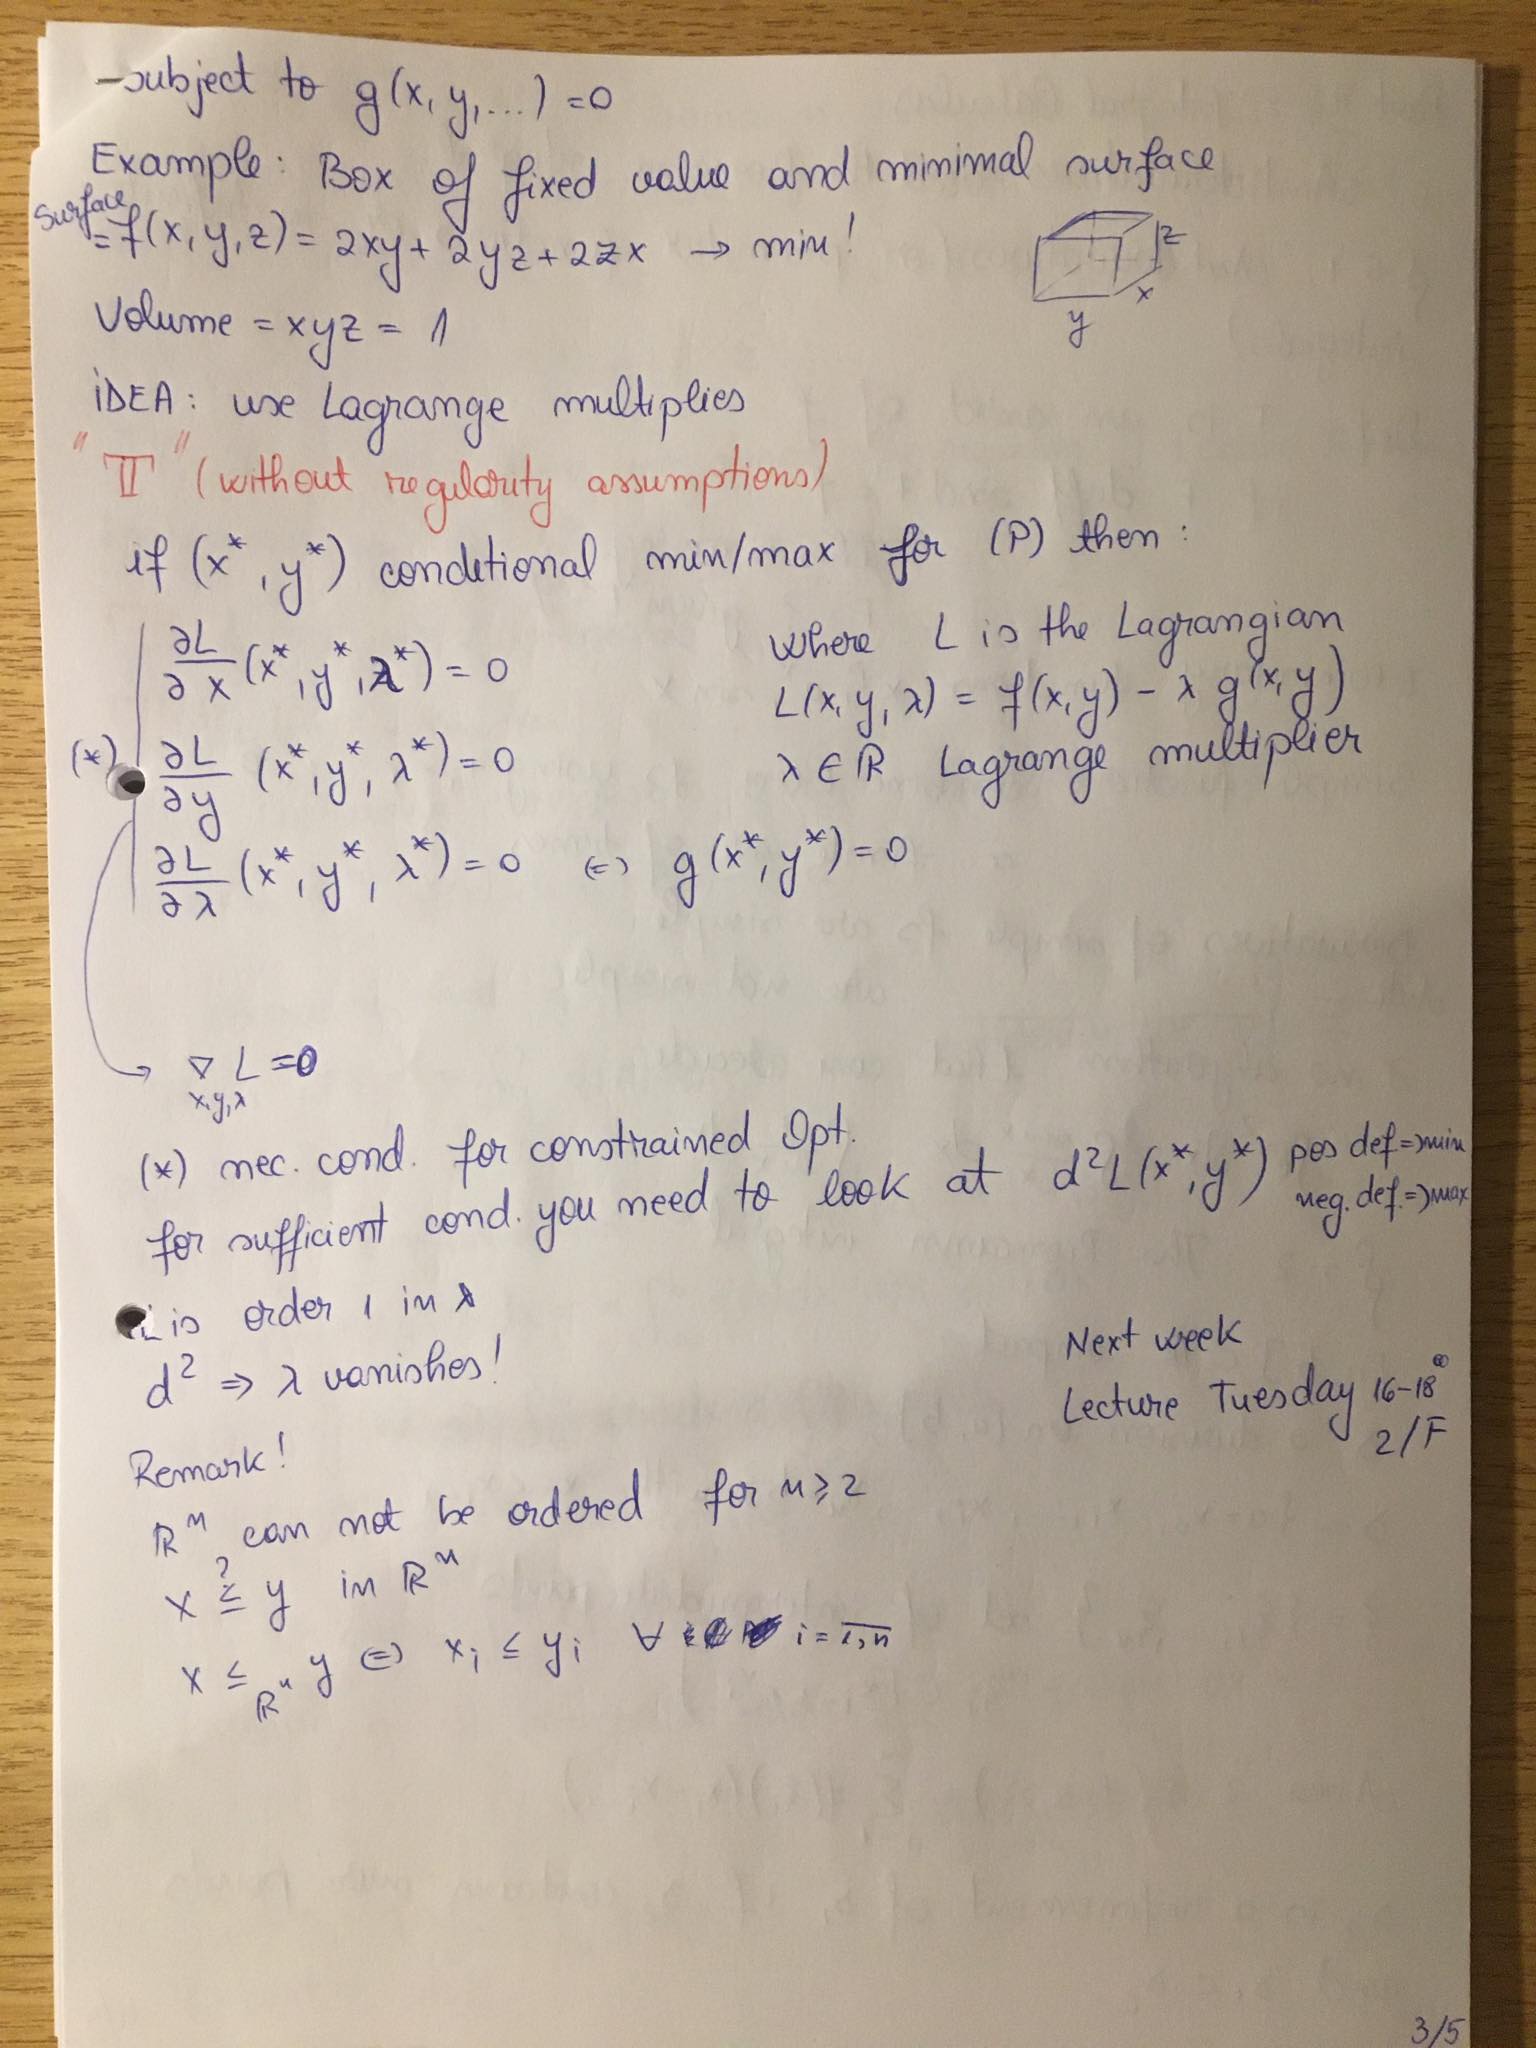 -subject to g(x, y, ...) = 0
Example: Box of fixed value and minimal surface
Surface
= f(x, y, z) = 2xy + 2yz + 2zx → min!
z
x
y
Volume = xyz = 1
IDEA: use Lagrange multiplies
"T" (without regularity assumptions)
if (x*, y*) conditional min/max for (P) then:
∂L/∂x (x*, y*, λ*) = 0
where L is the Lagrangian
L(x, y, λ) = f(x, y) - λ g(x, y)
(*) ∂L/∂y (x*, y*, λ*) = 0
λ ∈ ℝ Lagrange multiplier
∂L/∂λ (x*, y*, λ*) = 0 ⇔ g(x*, y*) = 0
∇ L = 0
x, y, λ
(*) nec. cond. for constrained Opt.
for sufficient cond. you need to look at d²L(x*, y*) pos def ⇒ min
neg. def. ⇒ max
L is order 1 in λ
d² ⇒ λ vanishes!
Next week
Lecture Tuesday 16-18
2/F
Remark!
ℝⁿ can not be ordered for n ≥ 2
x ≤? y in ℝⁿ
x ≤_ℝⁿ y ⇔ xᵢ ≤ yᵢ ∀ i = 1,n
3/5